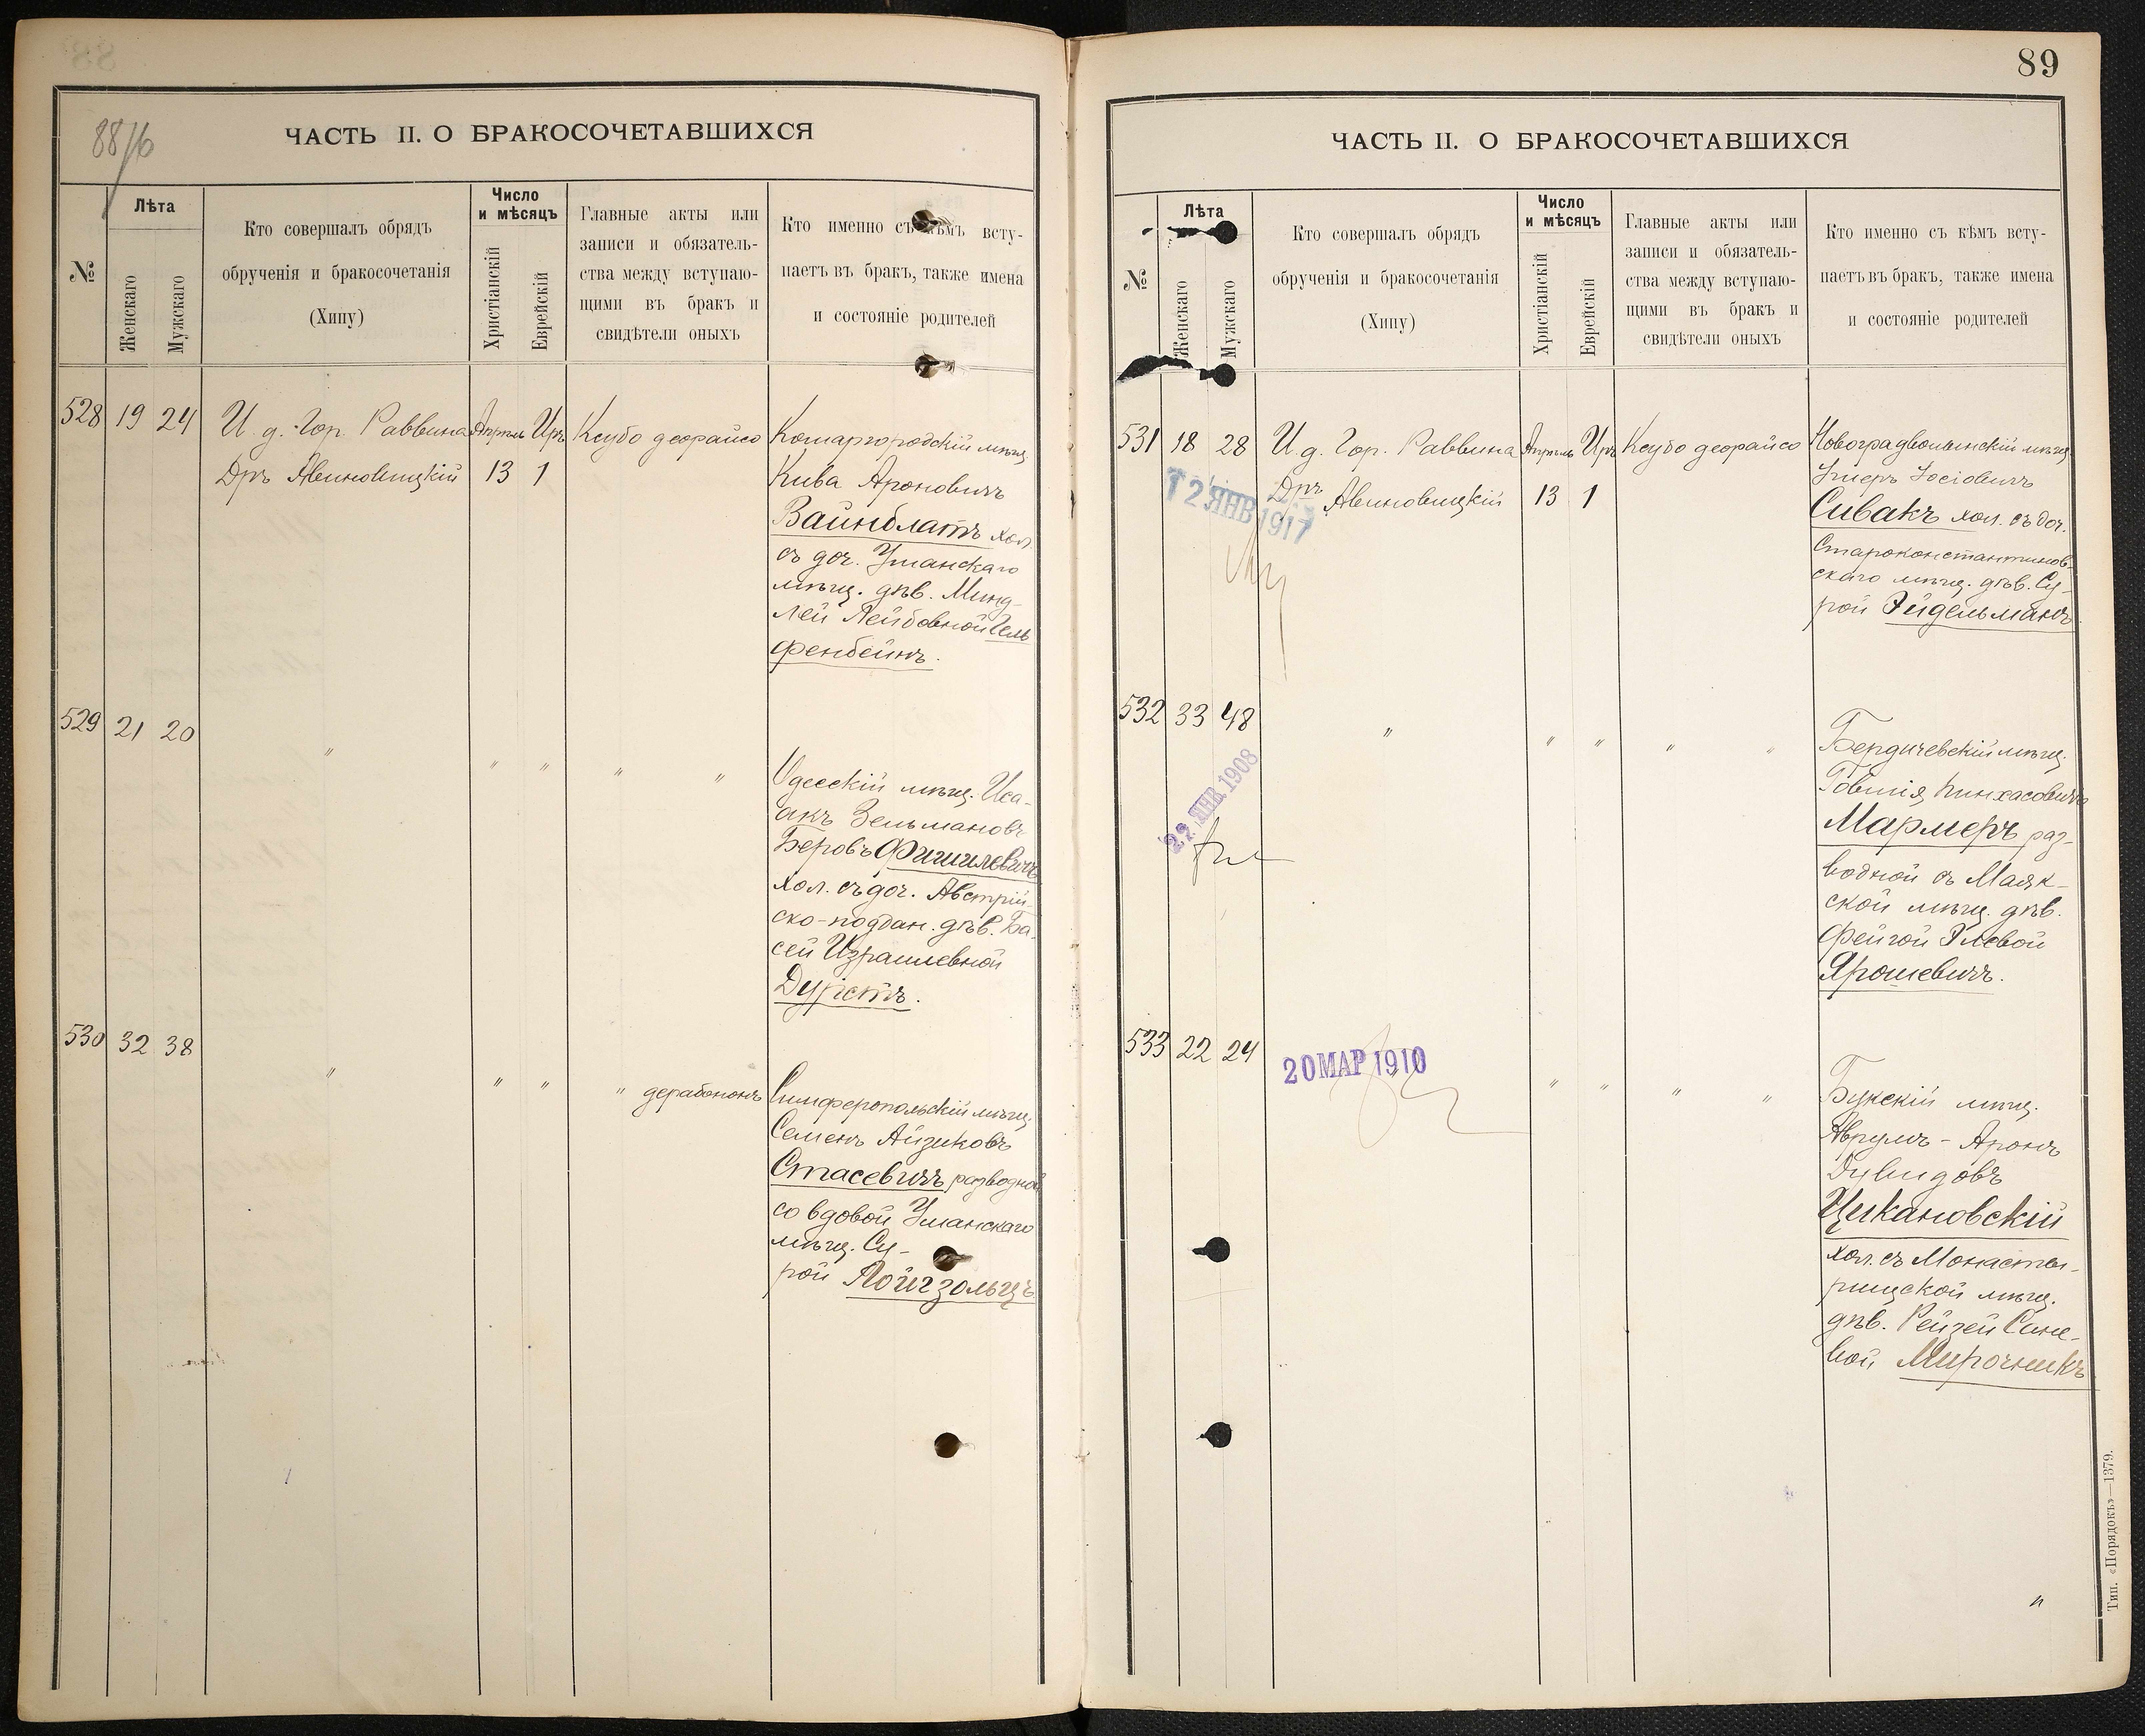 88/б
ЧАСТЬ II. О БРАКОСОЧЕТАВШИХСЯ
№
Лѣта
Женскаго
Мужскаго
Кто совершалъ обрядъ
обрученія и бракосочетанія
(Хипу)
Число
и мѣсяцъ
Христіанскій
Еврейскій
Главные акты или
записи и обязатель-
ства между вступаю-
щими въ бракъ и
свидѣтели оныхъ
Кто именно съ кѣмъ всту-
паетъ въ бракъ, также имена
и состояніе родителей
528 19 24 И. д. Гор. Раввина Апрѣль Иръ Ксубо деорайсо Комаргородскій мѣщ.
Дръ Авиновицкій 13 1 Кива Ароновичъ
Вайнблатъ хол.
съ доч. Уманскаго
мѣщ. дѣв. Минд-
лей Лейбовной Гель
фенбейнъ.
529 21 20 " " " " " Одесскій мѣщ. Иса-
акъ Зельмановъ
Беровъ Фишилевичъ
хол. съ доч. Австрій-
ско-поддан. дѣв. Ба-
сей Израилевной
Дуристъ.
530 32 38 " " " " дерабононъ Симферопольскій мѣщ.
Семенъ Айзиковъ
Стасевичъ разводной
со вдовой Уманскаго
мѣщ. Су-
рой Лойгзольцъ
89
ЧАСТЬ II. О БРАКОСОЧЕТАВШИХСЯ
№
Лѣта
Женскаго
Мужскаго
Кто совершалъ обрядъ
обрученія и бракосочетанія
(Хипу)
Число
и мѣсяцъ
Христіанскій
Еврейскій
Главные акты или
записи и обязатель-
ства между вступаю-
щими въ бракъ и
свидѣтели оныхъ
Кто именно съ кѣмъ всту-
паетъ въ бракъ, также имена
и состояніе родителей
531 18 28 И. д. Гор. Раввина Апрѣль Иръ Ксубо деорайсо Новоградволынскій мѣщ.
Дръ Авиновицкій 13 1 Іосіовичъ
12 ЯНВ 1917
Сивакъ хол. съ доч.
Староконстантинов-
скаго мѣщ. дѣв. Су-
рой Эйдельманъ
532 33 48 " " " " " Бердичевскій мѣщ.
22 ЯНВ. 1908
Говшія Пинхасовичъ
Мармеръ раз-
водной съ Маяк-
ской мѣщ. дѣв.
Фейгой Элевой
Ярошевичъ.
533 22 24 20 МАР 1910 " " " " Букскій мѣщ.
Аврумъ-Аронъ
Дувидовъ
Цикановскій
хол. съ Монасты-
рищской мѣщ.
дѣв. Рейзей Сине-
вой Мирочникъ
Тип. «Порядокъ»—1379.